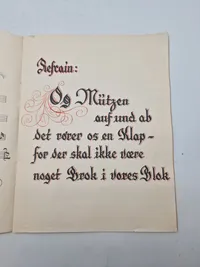 Refrain:
Os Mützen
auf und ab
det rører os en Klap-
for der skal ikke være
noget Brok i vores Blok